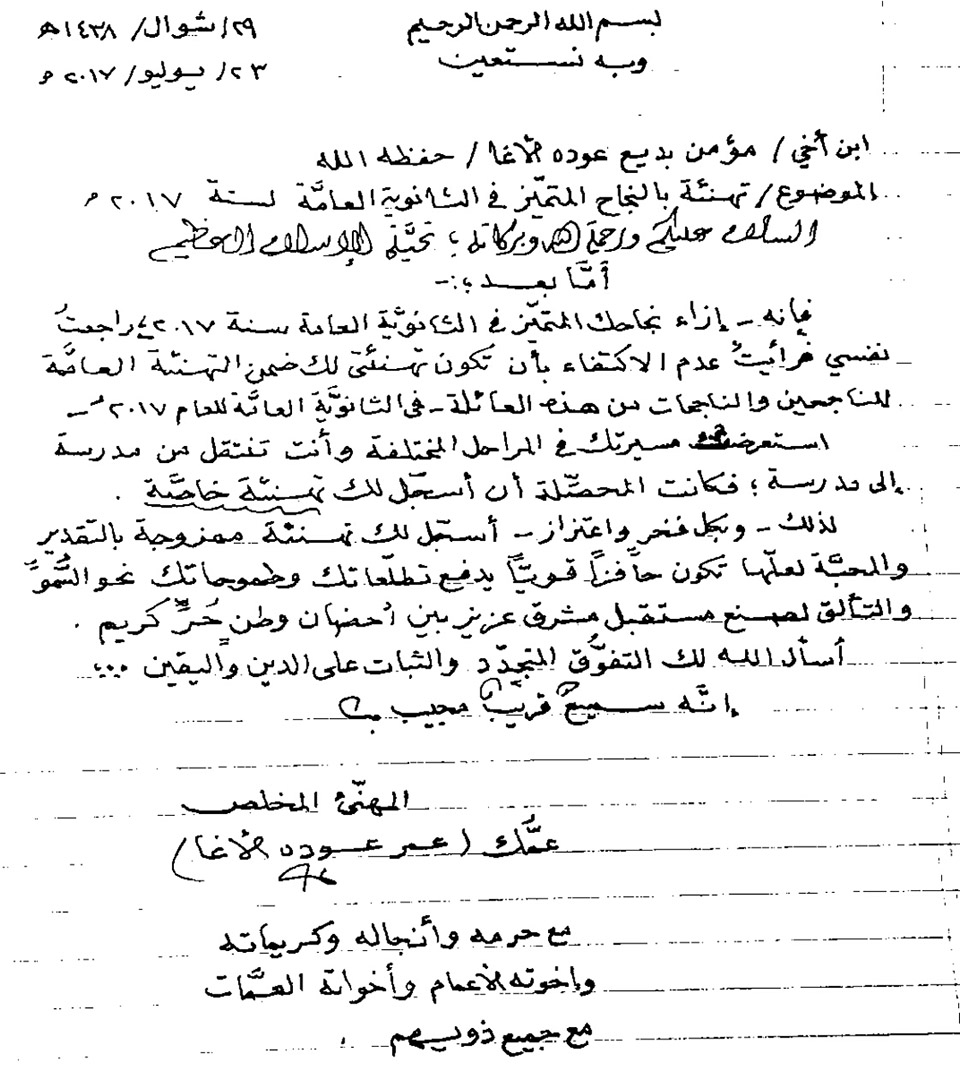 بسم الله الرحمن الرحيم
وبه نستعين
٢٩/ شوال/ ١٤٣٨هـ
٢٣/ يوليو/ ٢٠١٧م
ابن أخي/ مؤمن بديع عوده الأغا/ حفظه الله
الموضوع/ تهنئة بالنجاح المتميّز في الثانوية العامَّة لسنة ٢٠١٧م
السلام عليكم ورحمة الله وبركاته؛ تحيَّة الإسلام العظيم
أمَّا بعد؛:-
فإنه - إزاء نجاحك المتميّز في الثانويَّة العامة سنة ٢٠١٧م راجعتُ
نفسي فرأيتُ عدم الاكتفاء بأن تكون تهنئتي لك ضمن التهنئة العامَّة
للناجحين والناجحات من هذه العائلة - في الثانويَّة العامَّة للعام ٢٠١٧م -
استعرضتُ مسيرتك في المراحل المختلفة وأنت تنتقل من مدرسة
إلى مدرسة؛ فكانت المحصّلة أن أسجّل لك تهنئة خاصَّة.
لذلك - وبكل فخر واعتزاز - أسجّل لك تهنئة ممزوجة بالتقدير
والمحبَّة لعلّها تكون حافزاً قويّاً يدفع تطلّعاتك وطموحاتك نحو السُّموِّ
والتألق لصنع مستقبل مشرق عزيز بين أحضان وطنٍ حُرٍّ كريم.
أسأل الله لك التفوُّق المتجدّد والثبات على الدين واليقين ...
إنَّه سميعٌ قريبٌ مجيب
المهنّئ المخلص
عمُّك (عمر عوده الأغا)
مع حرمه وأنجاله وكريماته
وإخوته الأعمام وأخواته العمَّات
مع جميع ذويهم.